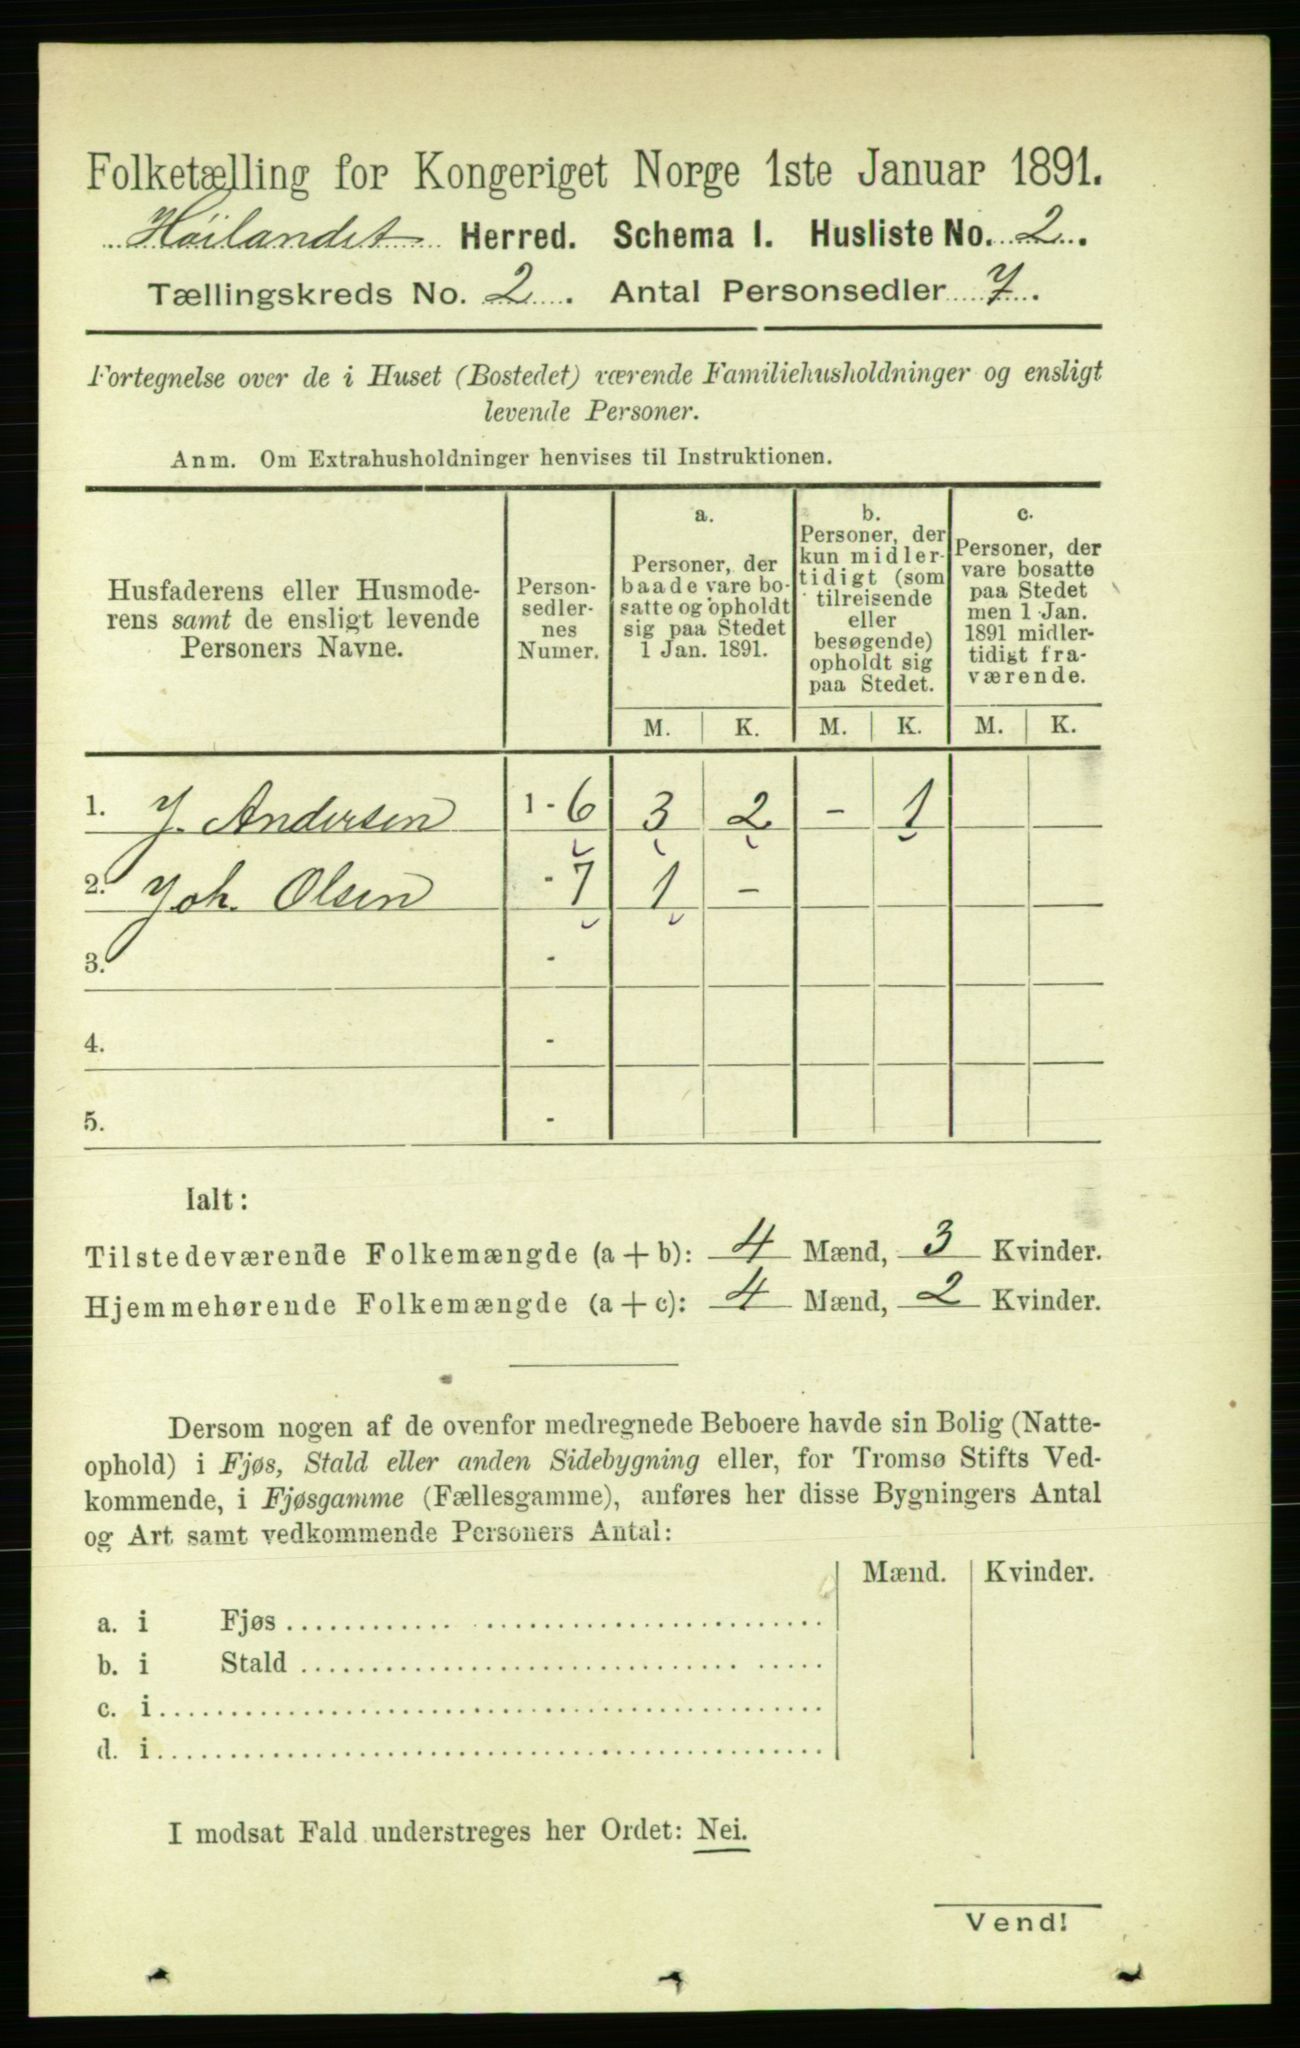 Folketælling for Kongeriget Norge 1ste Januar 1891.
Höilandet Herred. Schema I. Husliste No. 2.
Tællingskreds No. 2. Antal Personsedler 7.
Fortegnelse over de i Huset (Bostedet) værende Familiehusholdninger og ensligt
levende Personer.
Anm. Om Extrahusholdninger henvises til Instruktionen.
Husfaderens eller Husmode-
rens samt de ensligt levende
Personers Navne.
Person-
sedler-
nes
Numer.
a.
Personer, der
baade vare bo-
satte og opholdt
sig paa Stedet
1 Jan. 1891.
b.
Personer, der
kun midler-
tidigt (som
tilreisende
eller
besøgende)
opholdt sig
paa Stedet.
c.
Personer, der
vare bosatte
paa Stedet
men 1 Jan.
1891 midler-
tidigt fra-
værende.
M. K. M. K. M. K.
1. J. Andersen 1 - 6 3 2 - 1
2. Joh. Olsen - 7 1 -
3. -
4. -
5. -
Ialt:
Tilstedeværende Folkemængde (a + b): 4 Mænd, 3 Kvinder.
Hjemmehørende Folkemængde (a + c): 4 Mænd, 2 Kvinder.
Dersom nogen af de ovenfor medregnede Beboere havde sin Bolig (Natte-
ophold) i Fjøs, Stald eller anden Sidebygning eller, for Tromsø Stifts Ved-
kommende, i Fjøsgamme (Fællesgamme), anføres her disse Bygningers Antal
og Art samt vedkommende Personers Antal:
Mænd. Kvinder.
a. i Fjøs
b. i Stald
c. i
d. i
I modsat Fald understreges her Ordet: Nei.
Vend!